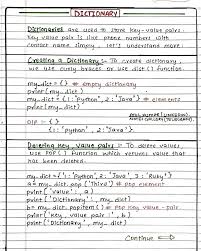 DICTIONARY
Dictionaries are used to store key-value pairs.
Key value pair is like phone numbers with
contact name simpy, let's understand more.
Creating a Dictionary :- To create dictionary,
we use curly braces or use dict() function.
my_dict = {} # empty dictionary
print(my_dict)
my_dict = {1: 'Python', 2: 'Java'} # elements
print(my_dict)
O/P :- {}
{1: 'Python', 2: 'Java'}
Deleting key, value pairs :- To delete values,
use POP() function which returns value that
has been deleted.
my_dict = {1: 'Python', 2: 'Java', 3: 'Ruby'}
a = my_dict.pop('Third') # Pop element
print('value:', a)
print('Dictionary:', my_dict)
b = my_dict.popitem() # Pop key-value pair
print('key, value pair:', b)
print('Dictionary', my_dict)
Continue